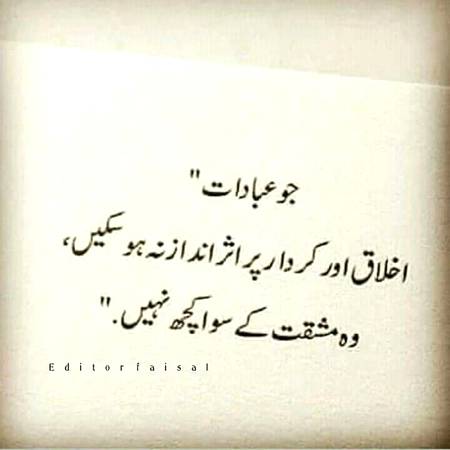 جو عبادات"
اخلاق اور کردار پر اثر انداز نہ ہو سکیں،
وہ مشقت کے سوا کچھ نہیں."
Editorfaisal